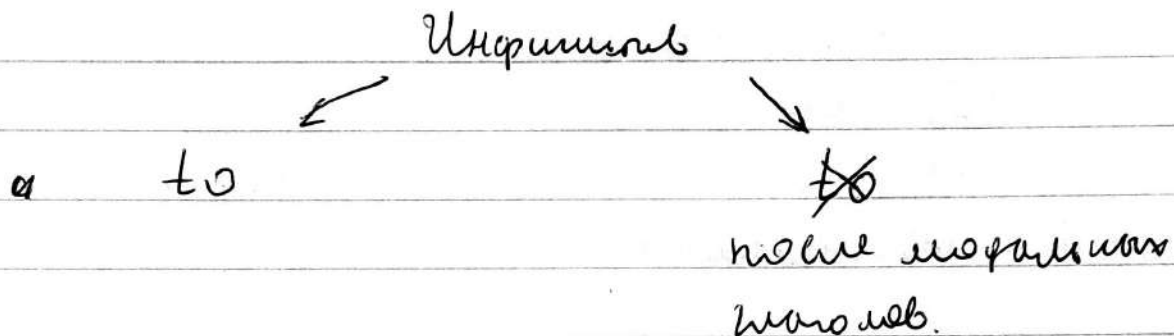 Инфинитив
а to to
после модальных
глаголов.